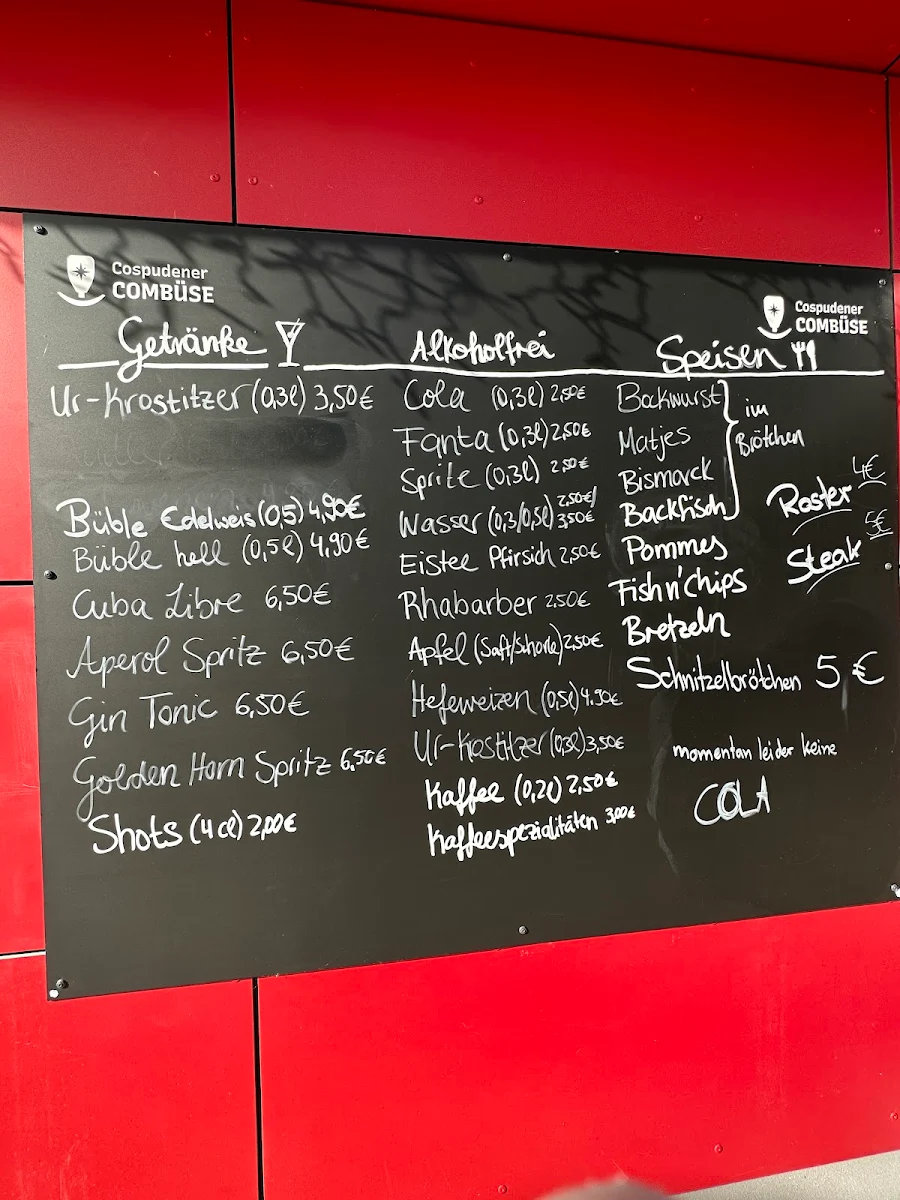 Cospudener
COMBÜSE
Cospudener
COMBÜSE
Getränke
Ur-Krostitzer (0,3l) 3,50€
Büble Edelweis (0,5) 4,90€
Büble hell (0,5l) 4,90€
Cuba Libre 6,50€
Aperol Spritz 6,50€
Gin Tonic 6,50€
Golden Horn Spritz 6,50€
Shots (4cl) 2,00€
Alkoholfrei
Cola (0,3l) 2,50€
Fanta (0,3l) 2,50€
Sprite (0,3l) 2,50€
Wasser (0,3/0,5l) 2,50€/
3,50€
Eistee Pfirsich 2,50€
Rhabarber 2,50€
Apfel (Saft/Schorle) 2,50€
Hefeweizen (0,5l) 4,90€
Ur-Krostitzer (0,3l) 3,50€
Kaffee (0,2l) 2,50€
Kaffeespezialitäten 3,00€
Speisen
Bockwurst
Matjes
Bismarck
Backfisch
im
Brötchen
Pommes
Fish n' Chips
Bretzeln
Schnitzelbrötchen 5 €
Roster 4€
Steak 5€
momentan leider keine
COLA